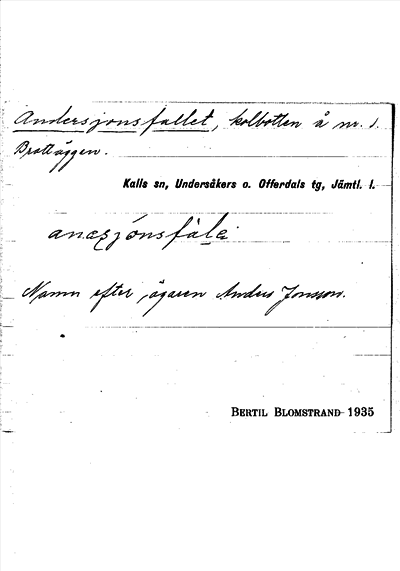 Andersjonsfallet, kolbotten å nr. 1.
Brattäggen.
Kalls sn, Undersåkers o. Offerdals tg, Jämtl. l.
Namn efter ägaren Anders Jonsson.
BERTIL BLOMSTRAND 1935